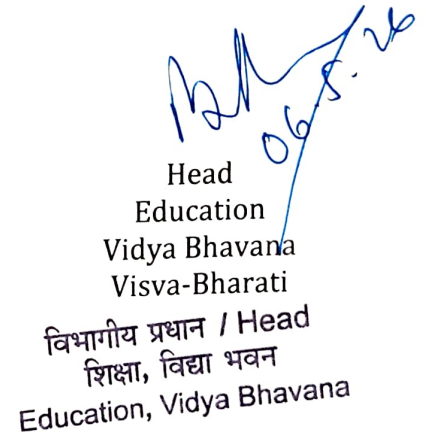 06.5.26
Head
Education
Vidya Bhavana
Visva-Bharati
विभागीय प्रधान / Head
शिक्षा, विद्या भवन
Education, Vidya Bhavana